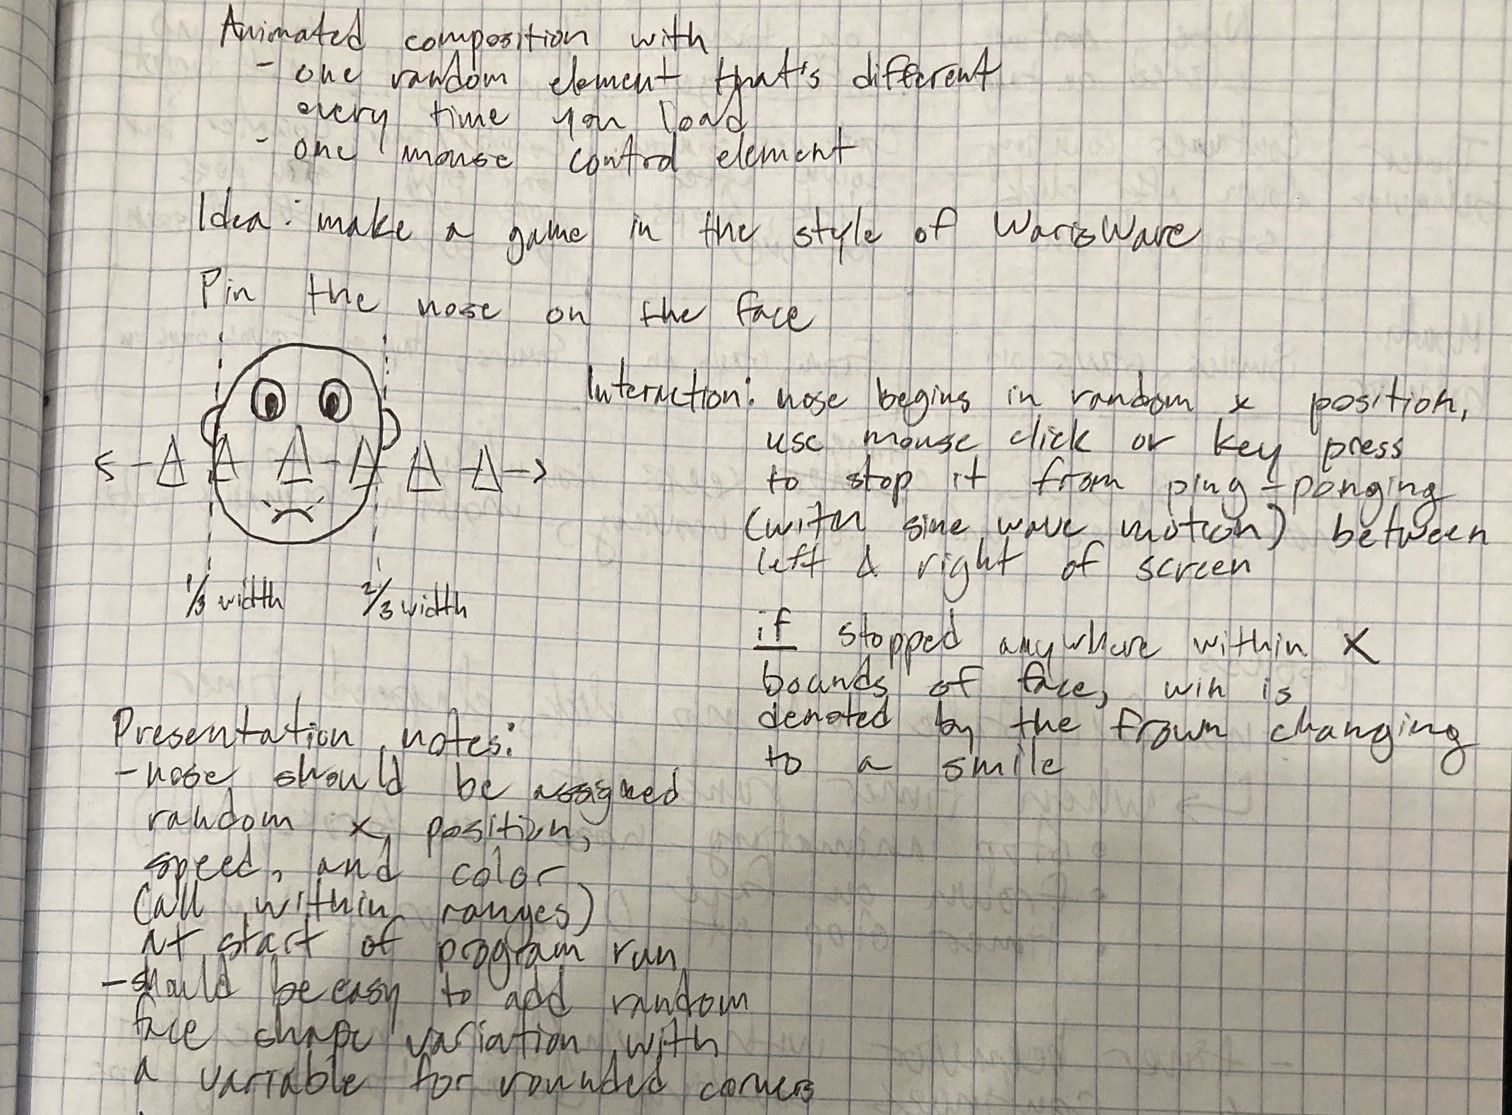 Animated composition with
- one random element that's different
every time you load
- one mouse control element
Idea: make a game in the style of WarioWare
Pin the nose on the face
1/3 width
2/3 width
Interaction: nose begins in random x position,
use mouse click or key press
to stop it from ping-ponging
(with sine wave motion) between
left & right of screen
if stopped anywhere within X
bounds of face, win is
denoted by the frown changing
to a smile
Presentation notes:
- nose should be assigned
random x, position,
speed, and color
(all within ranges)
at start of program run
- should be easy to add random
face shape variation with
a variable for rounded corners